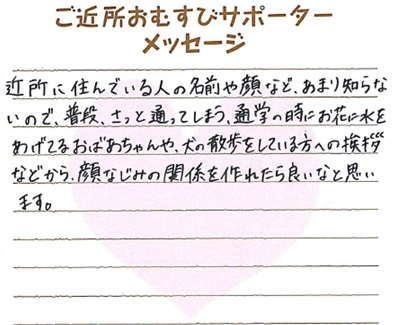 ご近所おむすびサポーター
メッセージ
近所に住んでいる人の名前や顔など、あまり知らな
いので、普段、さっと通ってしまう、通学の時にお花に水を
あげてるおばあちゃんや、犬の散歩をしている方への挨拶
などから、顔なじみの関係を作れたら良いなと思い
ます。